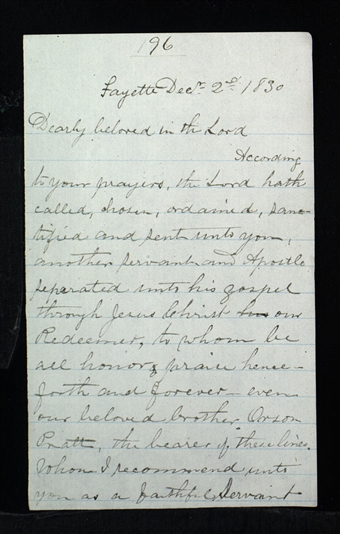 196
Fayette Decr 2d 1830
Dearly beloved in the Lord
According
to your prayers, the Lord hath
called, chosen, ordained, sanc-
tified and sent unto you,
another servant and Apostle
seperated unto his gospel
through Jesus Christ our
Redeemer, to whom be
all honor & praise hence-
forth and forever - even
our beloved brother Orson
Pratt, the bearer of these lines.
Whom I recommend unto
you as a faithful Servant